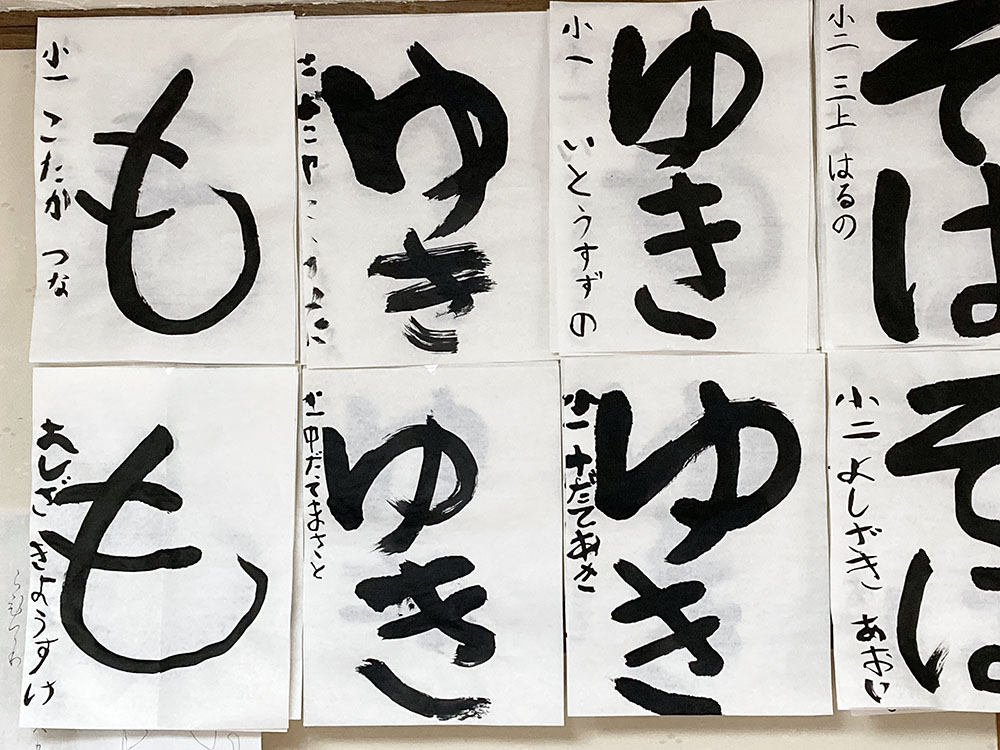 も
小一 こたか つな
ゆき
ゆき
小一 いとうすずの
そは
小二 三上 はるの
も
きようすけ
ゆき
小一 中だてまさと
ゆき
小一 中だてあき
そは
小二 よしざき あおい